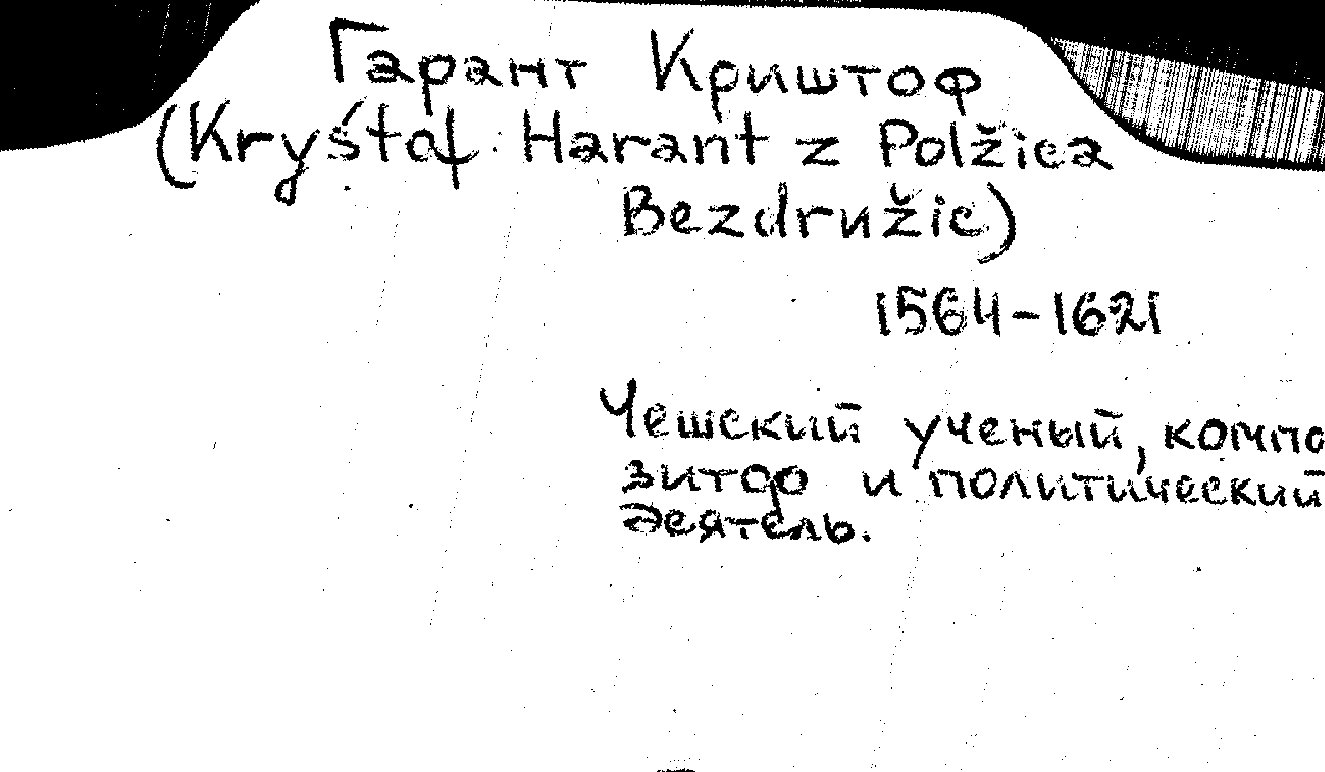 Гарант Криштоф
(Kryśtof Harant z Polžica
Bezdružic)
1564-1621
Чешский ученый, компо
зитор и политический
деятель.